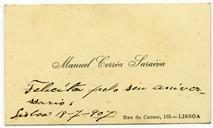 Manuel Corrêa Saraiva
Felicita pelo seu aniver-
sario:
Lisboa 18-7-907
Rua do Carmo, 105 — LISBOA